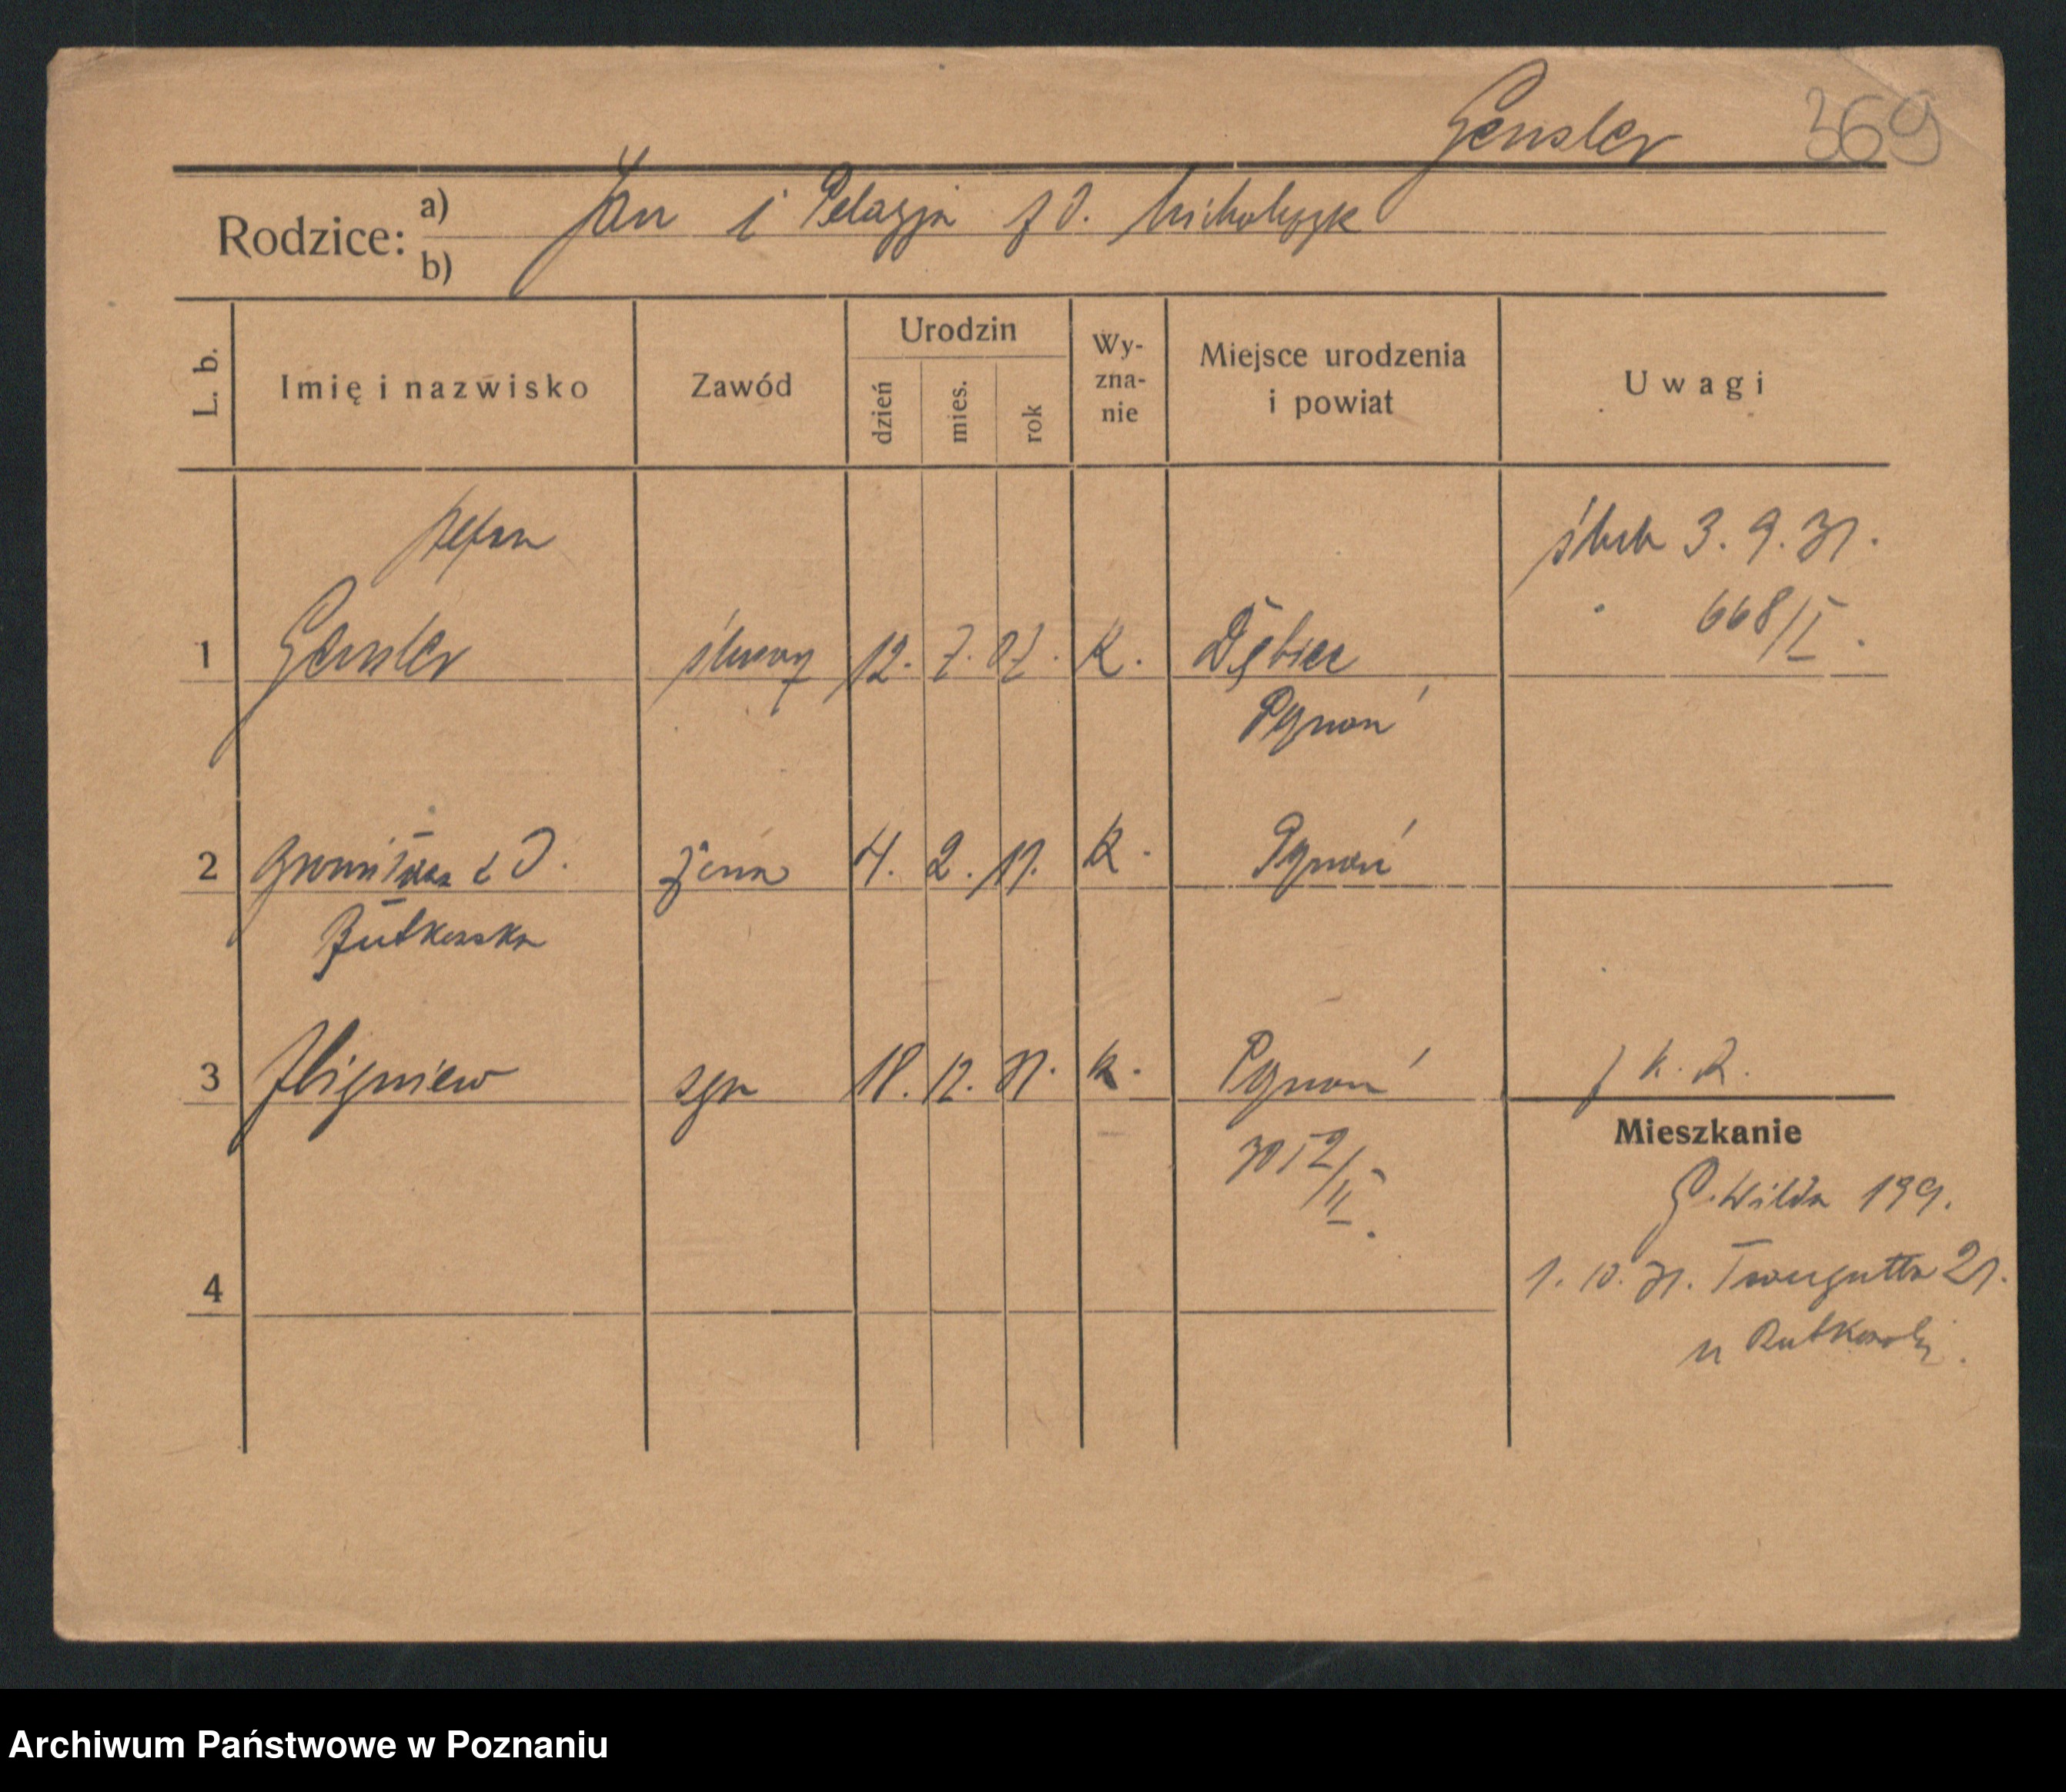 Gensler 369
Rodzice: a) Jan i Pelagja z d. Michalczyk
b)
L. b. Imię i nazwisko Zawód Urodzin Wy-zna-nie Miejsce urodzenia i powiat Uwagi
dzień mies. rok
Stefan ślub 3. 9. 31.
668/II.
1 Gensler 12. 7. 07. K. Dębiec
Poznań
2 z d. żona 4. 2. 11. K. Poznań
Rutkowska
3 Zbigniew syn 18. 12. 31. K. Poznań
Mieszkanie
G. Wilda 199.
1. 10. 31. Traugutta 21.
4
u Rutkowski.
Archiwum Państwowe w Poznaniu